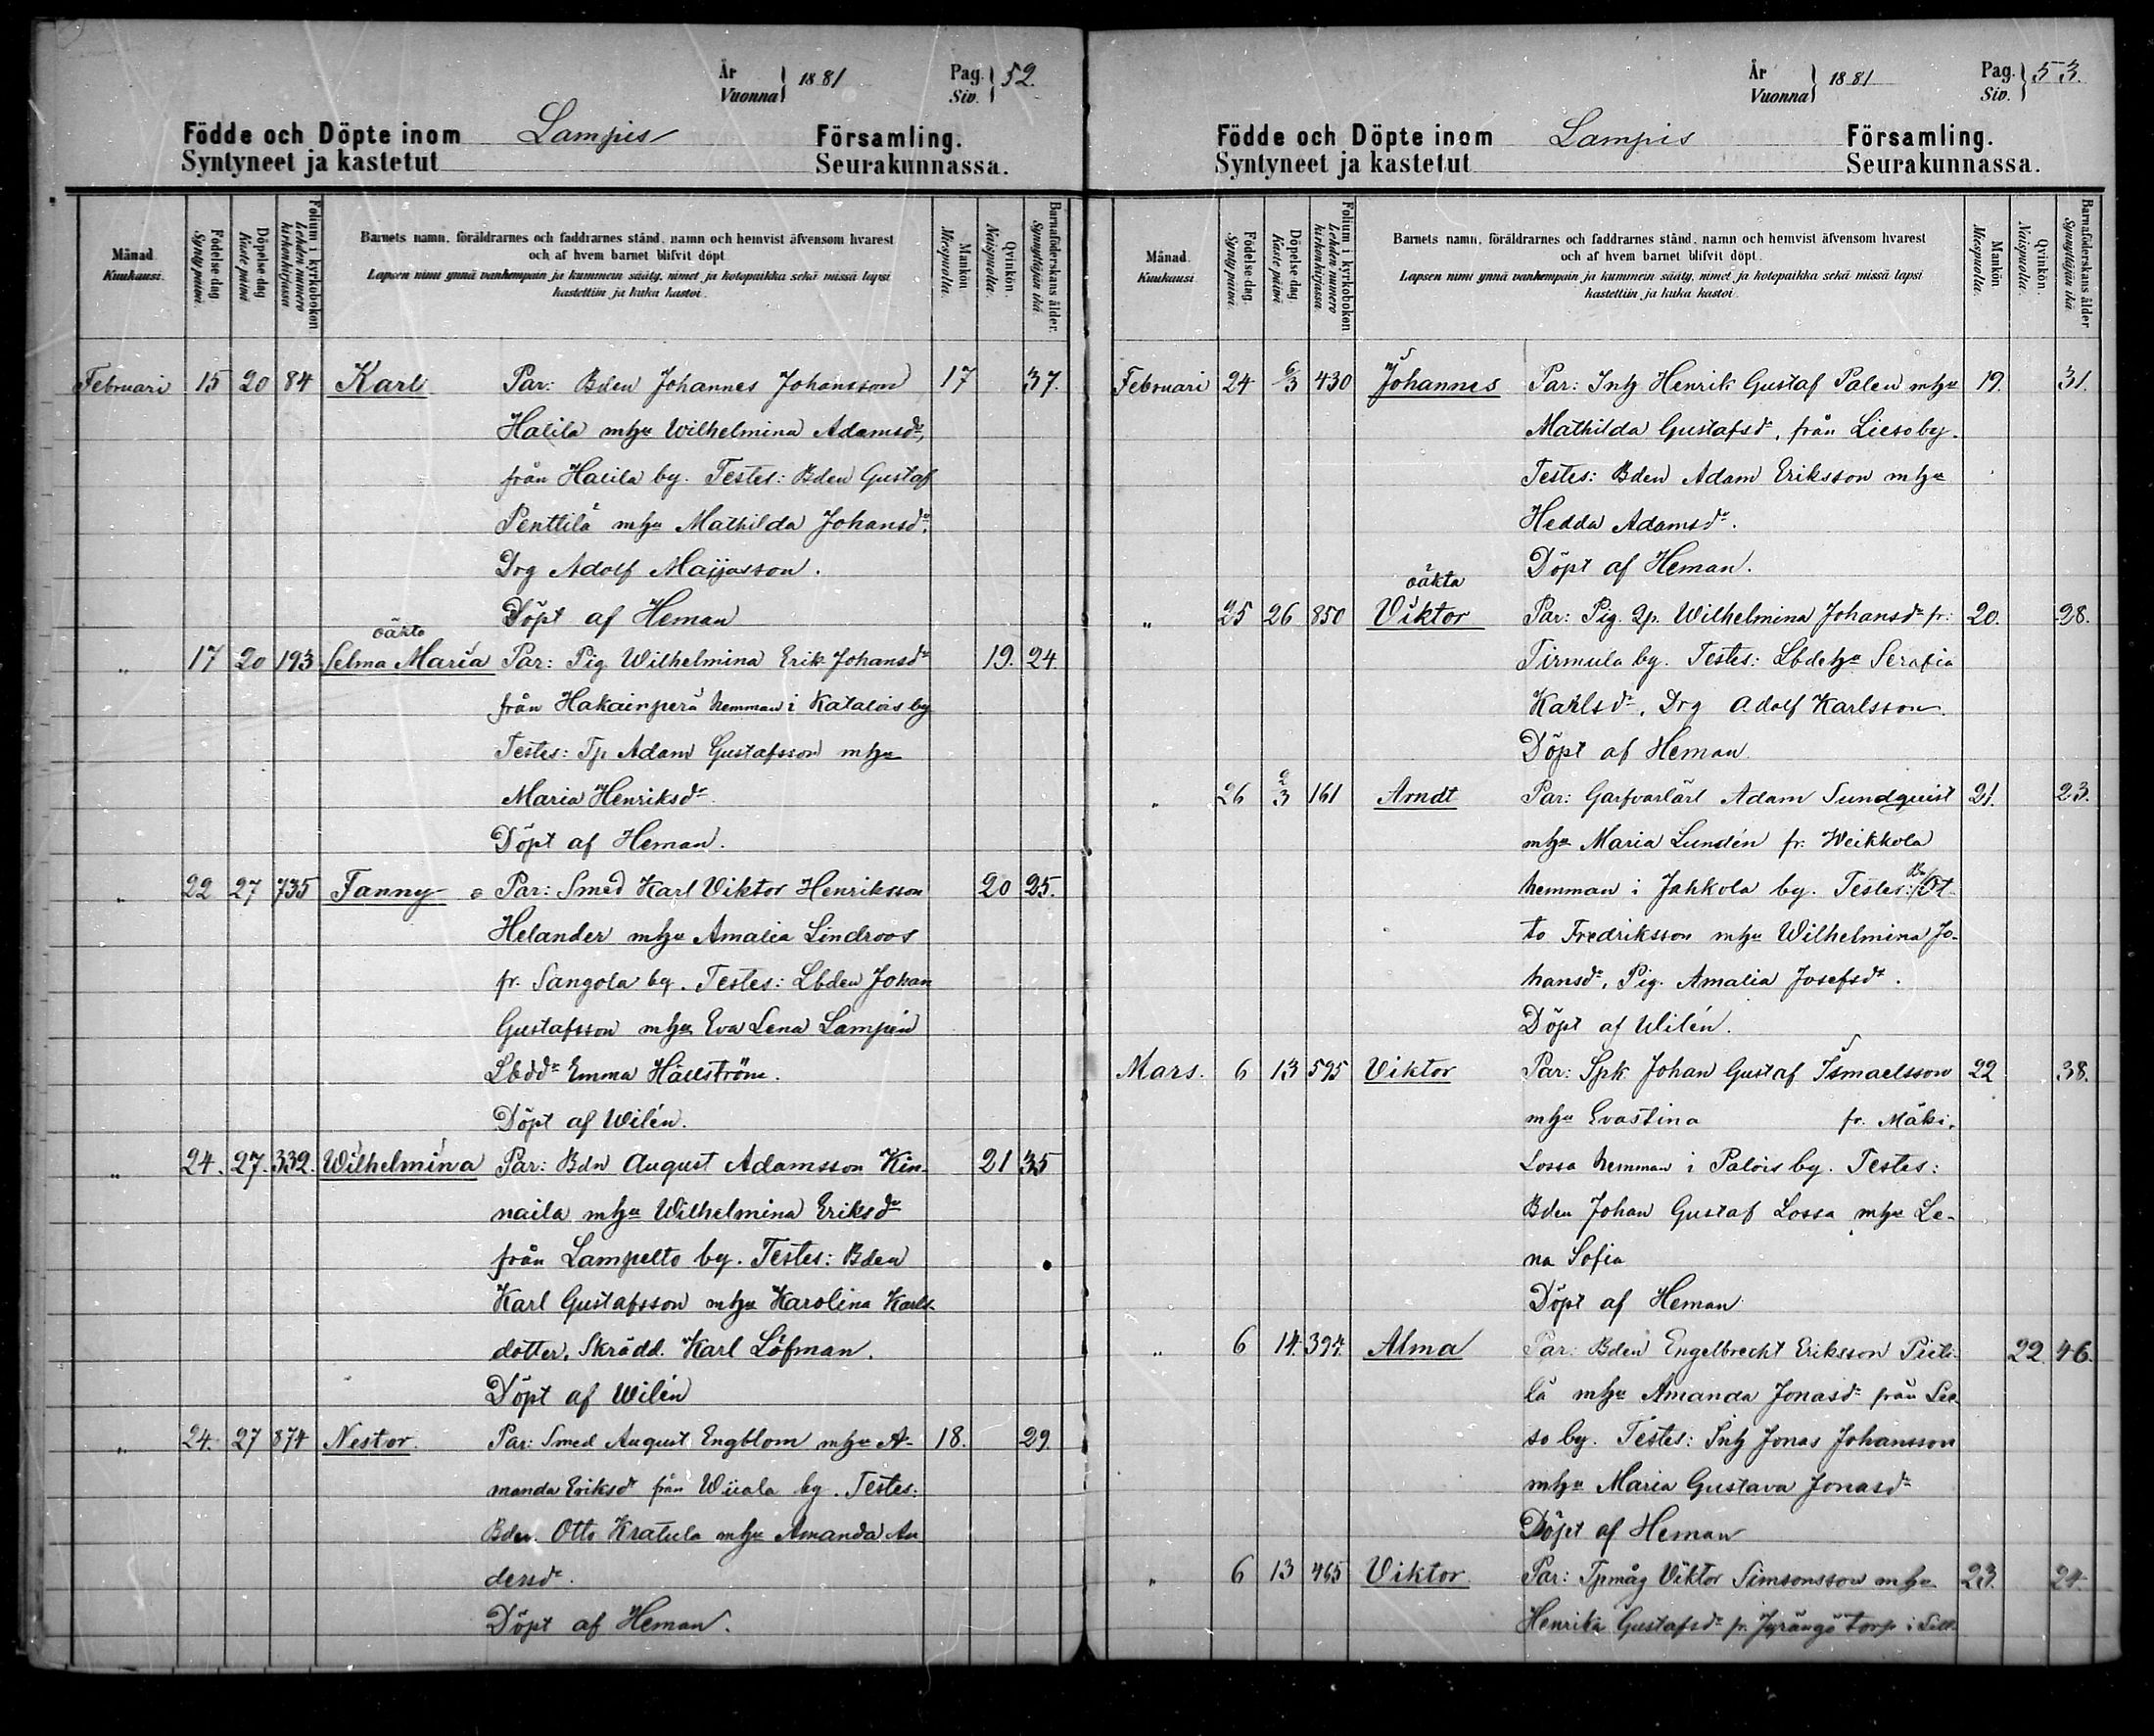 År
Vuonna } 1881 Pag. Siv. } 52.
Födde och Döpte inom Lampis Församling.
Syntyneet ja kastetut Seurakunnassa.
Månad Kuukausi. Födelse dag. Synty päiwä. Döpelse dag Kaste päiwä Folium i kyrkoboken Lehden numero kirkonkirjassa Barnets namn, föräldrarnes och faddrarnes stånd, namn och hemvist äfvensom hvarest och af hvem barnet blifvit döpt. Mankön Miespuolia. Qvinkön. Naispuolia. Barnaföderskans ålder. Synnyttäjän ikä.
Lapsen nimi ynnä vanhempain ja kummein sääty, nimet ja kotopaikka sekä missä lapsi kastettiin ja kuka kastoi.
Februari 15 20 84 Karl Par: Bden Johannes Johansson 17 37.
Halila mhu Wilhelmina Adamsdr,
från Halila by. Testes: Bden Gustaf
Penttilä mhu Mathilda Johansdr.
Drg Adolf Maijasson.
Döpt af Heman
oäkta
" 17 20 193 Selma Maria Par: Pig Wilhelmina Erik Johansdr 19. 24.
från Hakainperä hemman i Katalois by
Testes: Tp Adam Gustafsson mhu
Maria Henriksdr
Döpt af Heman.
" 22 27 735 Fanny Par: Smed Karl Viktor Henriksson 20 25.
Helander mhu Amalia Lindroos
fr. Sangola by. Testes: Lbden Johan
Gustafsson mhu Eva Lena Lampén
Lbddr Emma Hällström.
Döpt af Wilén.
" 24. 27. 332. Wilhelmina Par: Bdn August Adamsson Kin- 21 35
naila mhu Wilhelmina Eriksdr
från Lampelto by. Testes: Bden
Karl Gustafsson mhu Karolina Karls
dotter, Skrädd. Karl Löfman.
Döpt af Wilén
" 24. 27 874 Nestor. Par: Smed August Engblom mhu A- 18. 29
manda Eriksdr från Wiiala by. Testes:
Bden. Otto Kratula mhu Amanda An
dersdr.
Döpt af Heman.
År
Vuonna } 1881 Pag. Siv. } 53.
Födde och Döpte inom Lampis Församling.
Syntyneet ja kastetut Seurakunnassa.
Månad Kuukausi Födelse dag. Synty päiwä. Döpelse dag. Kaste päiwä. Folium i kyrkoboken Lehden numero kirkonkirjassa. Barnets namn, föräldrarnes och faddrarnes stånd, namn och hemvist äfvensom hvarest och af hvem barnet blifvit döpt. Mankön Miespuolia. Qvinkön. Naispuolia. Barnaföderskans ålder Synnyttäjän ikä
Lapsen nimi ynnä vanhempain ja kummein sääty, nimet ja kotopaikka sekä missä lapsi kastettiin ja kuka kastoi.
Februari 24 6/3 430 Johannes Par: Inh Henrik Gustaf Palen mhu 19. 31.
Mathilda Gustafsdr, från Lieso by.
Testes: Bden Adam Eriksson mhu
Hedda Adamsdr.
Döpt af Heman.
oäkta
" 25 26 850 Viktor Par: Pig. Qp. Wilhelmina Johansdr fr: 20. 28.
Tirmula by. Testes: Lbdehu Serafia
Karlsdr, Drg Adolf Karlsson.
Döpt af Heman
" 26 2/3 161 Arndt Par: Garfvarlärl Adam Sundquist 21. 23.
mhu Maria Lundén fr: Weikkola
hemman i Jahkola by. Testes: Ot-
to Fredriksson mhu Wilhelmina Jo-
hansdr, Pig. Amalia Josefsdr.
Döpt af Wilén.
Mars. 6 13 595 Viktor Par: Spk Johan Gustaf Ismaelsson 22 38.
mhu Evastina fr. Mäki,
Lossa hemman i Palois by. Testes:
Bden Johan Gustaf Lossa mhu Le-
na Sofia
Döpt af Heman
" 6 14. 394. Alma Par: Bden Engelbrecht Eriksson Pieti- 22 46.
lä mhu Amanda Jonasdr från Lie
so by. Testes: Inh Jonas Johansson
mhu Maria Gustava Jonasdr
Döpt af Heman
" 6 13 465 Viktor Par: Tpmåg Viktor Simsonsson mhu 23. 24.
Henrika Gustafsdr fr. Jyrängö torp i